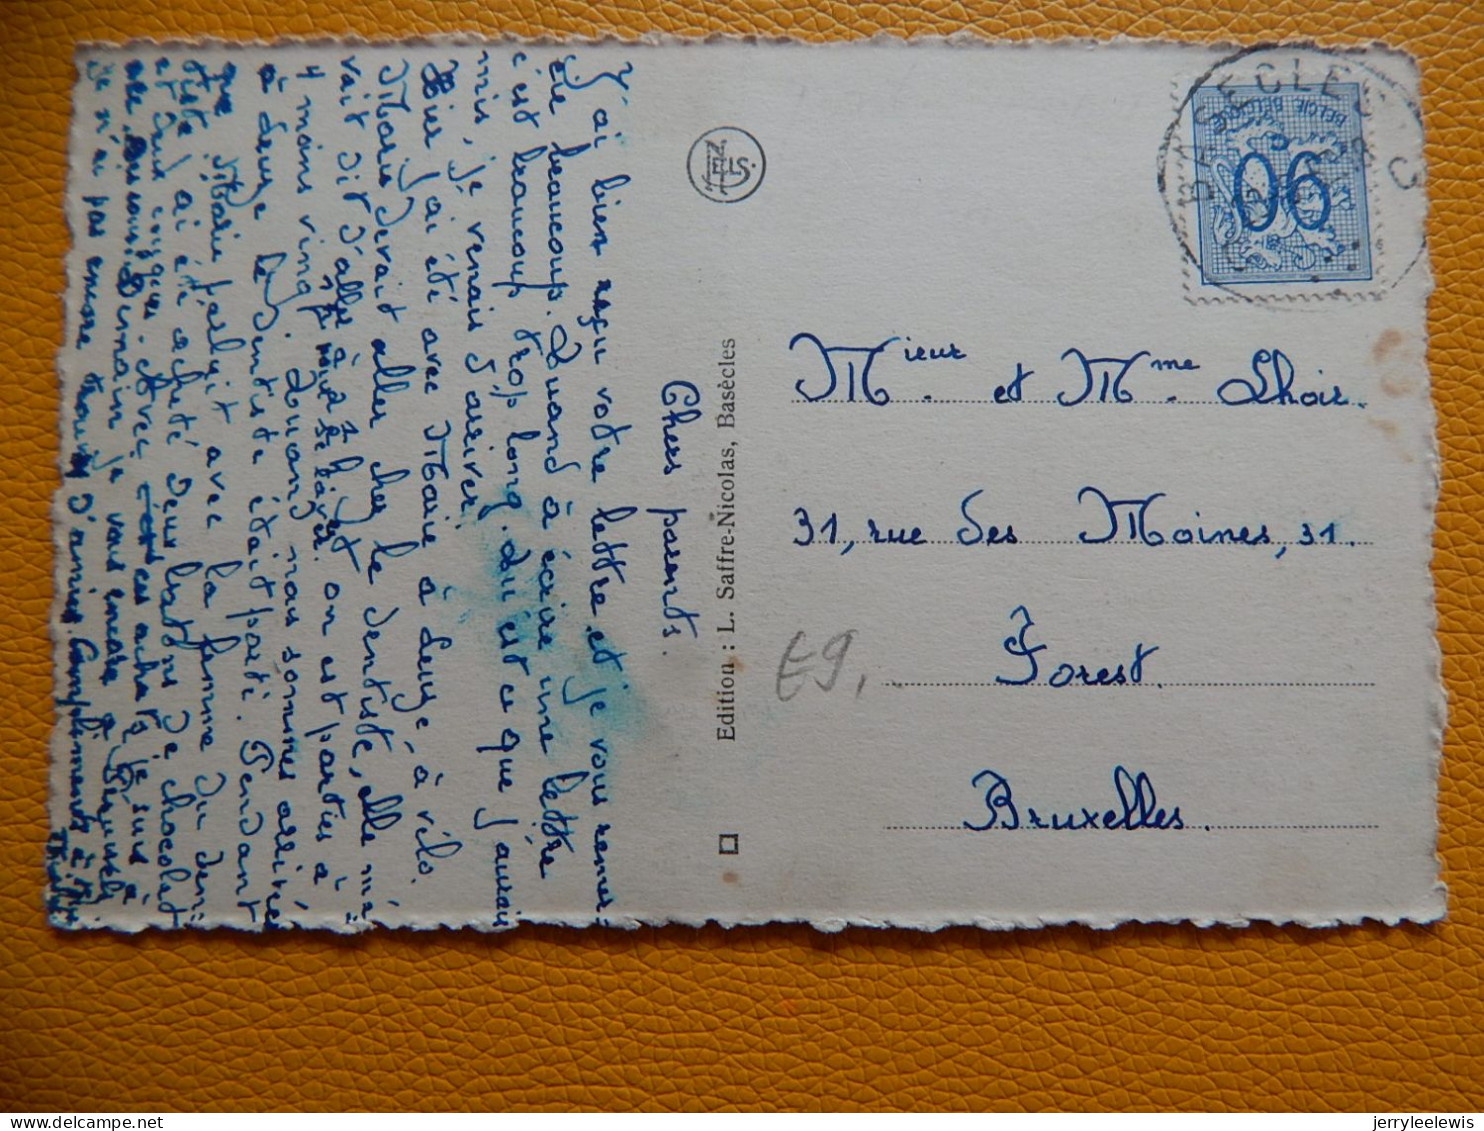 Chers parents.
J'ai bien reçu votre lettre et je vous remer=
cie beaucoup. Quand à écrire une lettre
c'est beaucoup trop long. Qu'est ce que j'aurais
mis, je venais d'arriver.
Hier j'ai été avec Marie à Leuze, à vélo.
Marie devait aller chez le dentiste, elle m'a=
vait dit d'aller à 2 h, et on est parties à
pour se laver
4 moins vingt. Quand nous sommes arrivées
à Leuze le dentiste était parti. Pendant
que Marie parlait avec la femme du den=
tiste j'ai été acheté deux batons de chocolat
et Avec ces achats je suis à
Demain je vous encore
Je n'ai pas encore trouvé d'amies. Compliments à
Edition : L. Saffre-Nicolas, Basècles
NELS
BASECLES
BELGIE BELGIQUE
90
Mieur. et Mme. Lhoir.
31, rue des Moines, 31.
Forest.
Bruxelles.
E9.
jerryleelewis